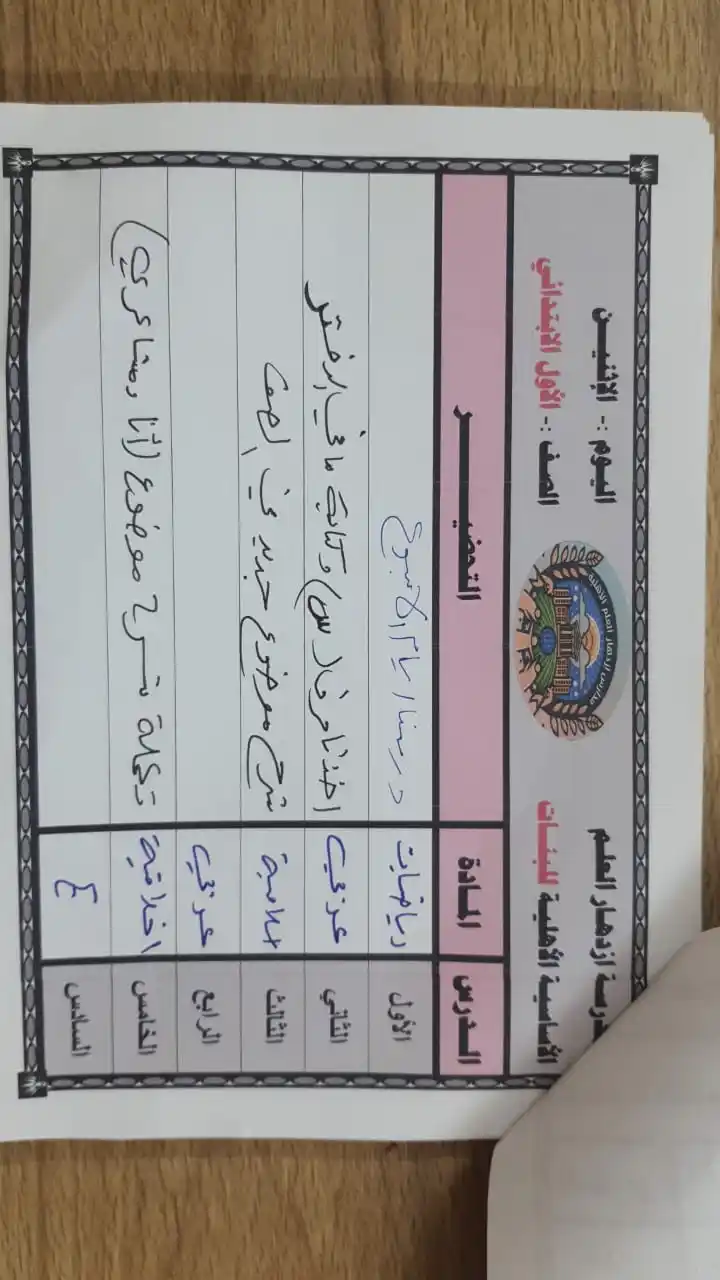 مدرسة ازدهار العلم
الأساسية الأهلية للبنات
مدارس ازدهار العلم الأهلية
اليوم :- الإثنيـن
الصف :- الأول الابتدائي
الـدرس المادة التحضيـــــر
الأول رياضيات درسنا ايام الاسبوع
الثاني عربي اخذنا حرف (س) وكتابة ما في الدفتر
الثالث اسلامية شرح موضوع جديد في الصف
الرابع عربي
الخامس اخلاقية تكملة شرح موضوع (أنا ومشاعري)
السادس ع